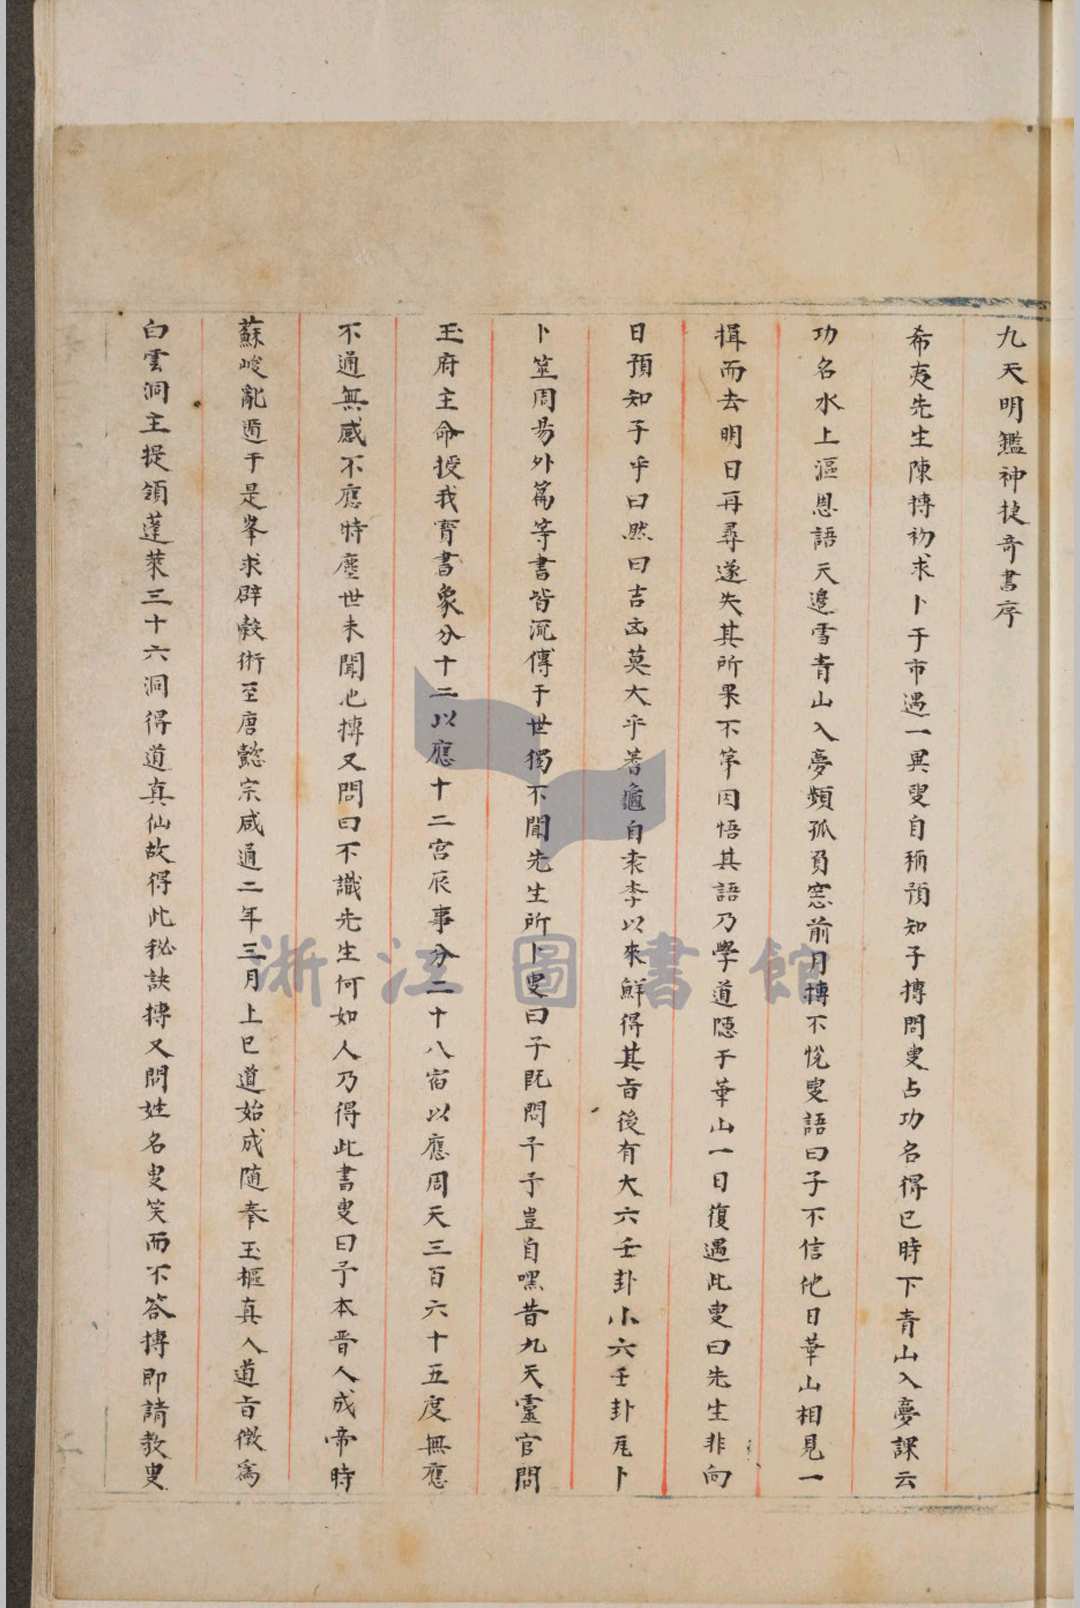 九天明鑑神捷奇書序
希夷先生陳摶初求卜于市遇一異叟自稱預知子摶問叟占功名得巳時下青山入夢課云
功名水上漚恩語天邉雪青山入夢頻孤負窓前月摶不悅叟語曰子不信他日華山相見一
揖而去明日再尋遂失其所果不第因悟其語乃學道隱于華山一日復遇此叟曰先生非向
日預知子乎曰然曰吉凶莫大乎蓍龜自袁李以來鮮得其旨後有大六壬卦小六壬卦瓦卜
卜筮周易外篇等書皆流傳于世獨不聞先生所卜叟曰子既問予予豈自嘿昔九天靈官問
玉府主命授我育書象分十二以應十二宮辰事分二十八宿以應周天三百六十五度無應
不通無感不應特塵世未聞也摶又問曰不識先生何如人乃得此書叟曰予本晉人成帝時
蘇峻亂遁于是峯求辟穀術至唐懿宗咸通二年三月上巳道始成随奉玉樞真人道旨徴為
白雲洞主提領蓬萊三十六洞得道真仙故得此秘訣摶又問姓名叟笑而不答摶即請教叟
浙江圖書館